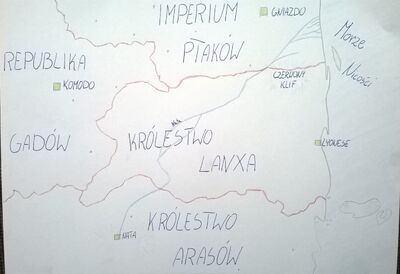 IMPERIUM
PTAKÓW
GNIAZDO
MORZE
NICOŚCI
REPUBLIKA
KOMODO
GADÓW
CZERWONY
KLIF
KRÓLESTWO
LANXA
LYONESE
KRÓLESTWO
ARASÓW
NATA